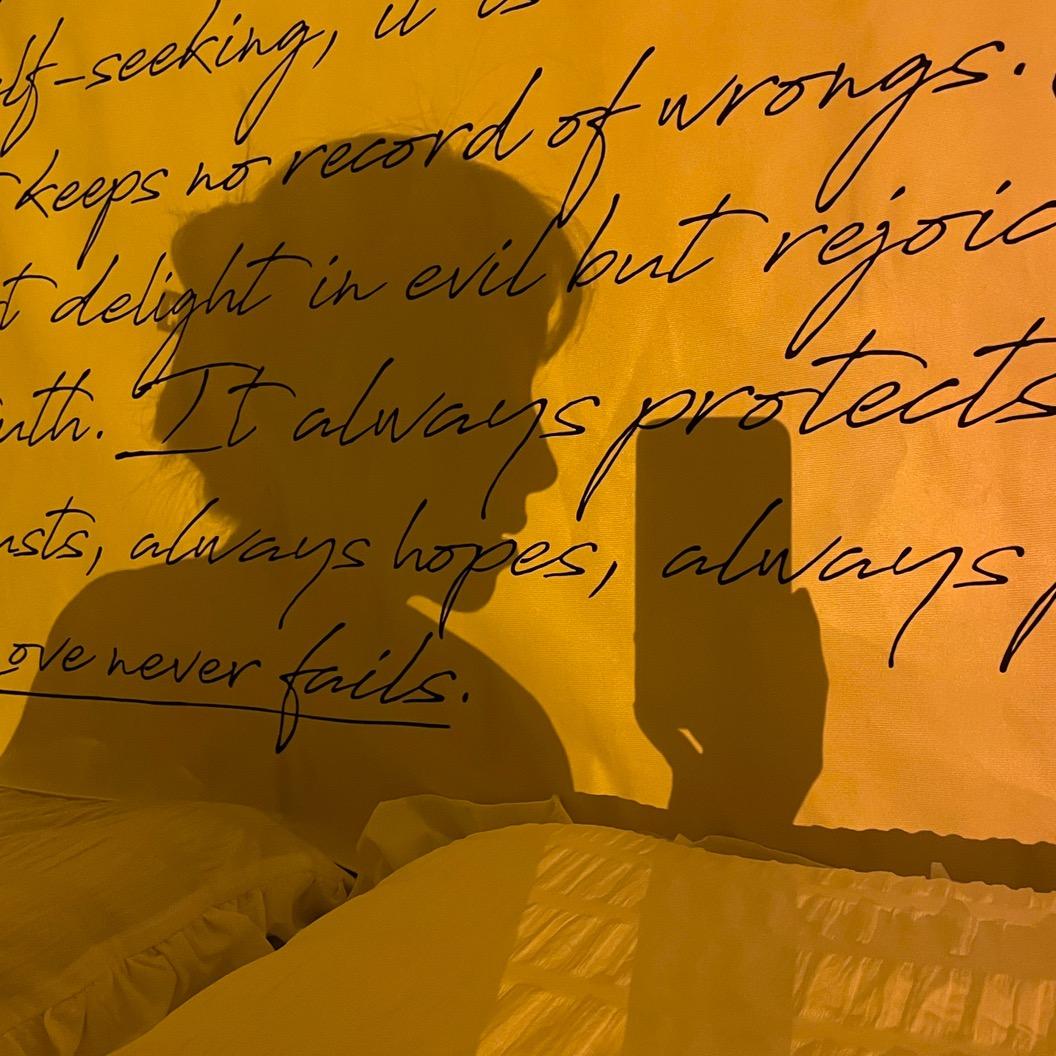 lf-seeking, it is
keeps no record of wrongs.
t delight in evil but rejoic
uth. It always protects
usts, always hopes, always p
ove never fails.